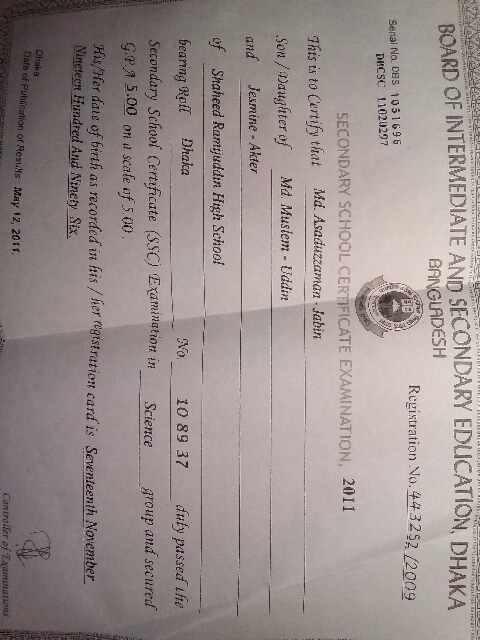 BOARD OF INTERMEDIATE AND SECONDARY EDUCATION, DHAKA
BANGLADESH
Serial No. DBS 1051696
DHCSC 11020297
Registration No. 443252/2009
SECONDARY SCHOOL CERTIFICATE EXAMINATION, 2011
This is to Certify that Md. Asaduzzaman - Jabin
Son / Daughter of Md. Muslem - Uddin
and Jesmine - Akter
of Shaheed Ramijuddin High School
bearing Roll Dhaka No. 10 89 37 duly passed the
Secondary School Certificate (SSC) Examination in Science group and secured
G.P.A 5.00 on a scale of 5.00.
His/Her date of birth as recorded in his / her registration card is Seventeenth November
Nineteen Hundred And Ninety Six.
Dhaka
Date of Publication of Results May 12, 2011.
Controller of Examinations